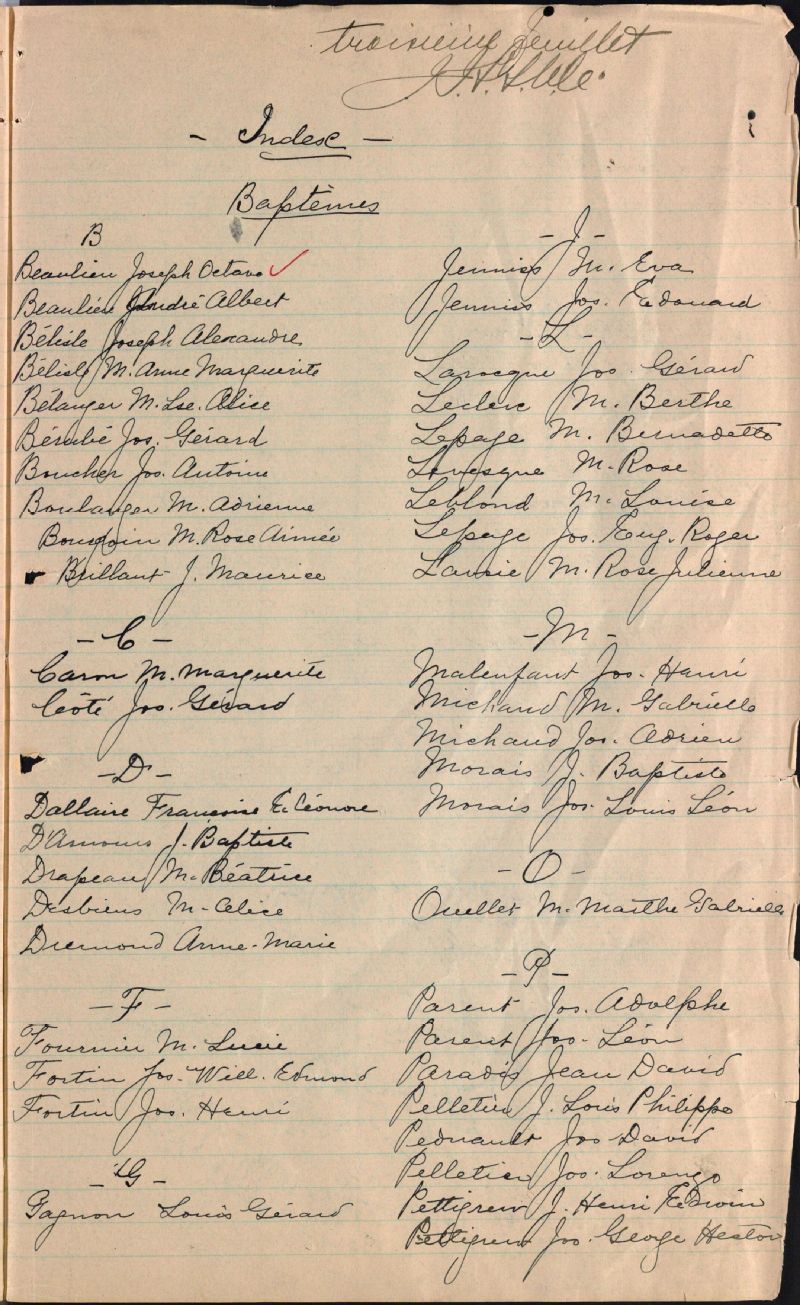 troisième feuillet
- Index -
Baptêmes
B
Beaulieu Joseph Octave
Beaulieu André Albert
Bélisle Joseph Alexandre
Bélisle M. Anne Marguerite
Bélanger M. Lse. Alice
Bérubé Jos. Gérard
Boucher Jos. Antoine
Boulanger M. Adrienne
Boudoin M. Rose Aimée
Brillant J. Maurice
- C -
Caron M. Marguerite
Côté Jos. Gérard
- D -
Dallaire Françoise Eléonore
D'Amours J. Baptiste
Drapeau M. Béatrice
Desbiens M. Alice
Drumond Anne-Marie
- F -
Fournier M. Lucie
Fortin Jos. Will. Edmond
Fortin Jos. Henri
- G -
Gagnon Louis Gérard
- J -
Jenniss M. Eva
Jenniss Jos. Edouard
- L -
Larocque Jos. Gérard
Leclerc M. Berthe
Lepage M. Bernadette
Levesque M. Rose
Leblond M. Louise
Lepage Jos. Eug. Roger
Lavoie M. Rose Julienne
- M -
Malenfant Jos. Henri
Michaud M. Gabrielle
Michaud Jos. Adrien
Morais J. Baptiste
Morais Jos. Louis Léon
- O -
Ouellet M. Marthe Gabrielle
- P -
Parent Jos. Adolphe
Parent Jos. Léon
Paradis Jean David
Pelletier J. Louis Philippe
Pednault Jos David
Pelletier Jos. Lorenzo
Pettigrew J. Henri Edwin
Pettigrew Jos. George Hector